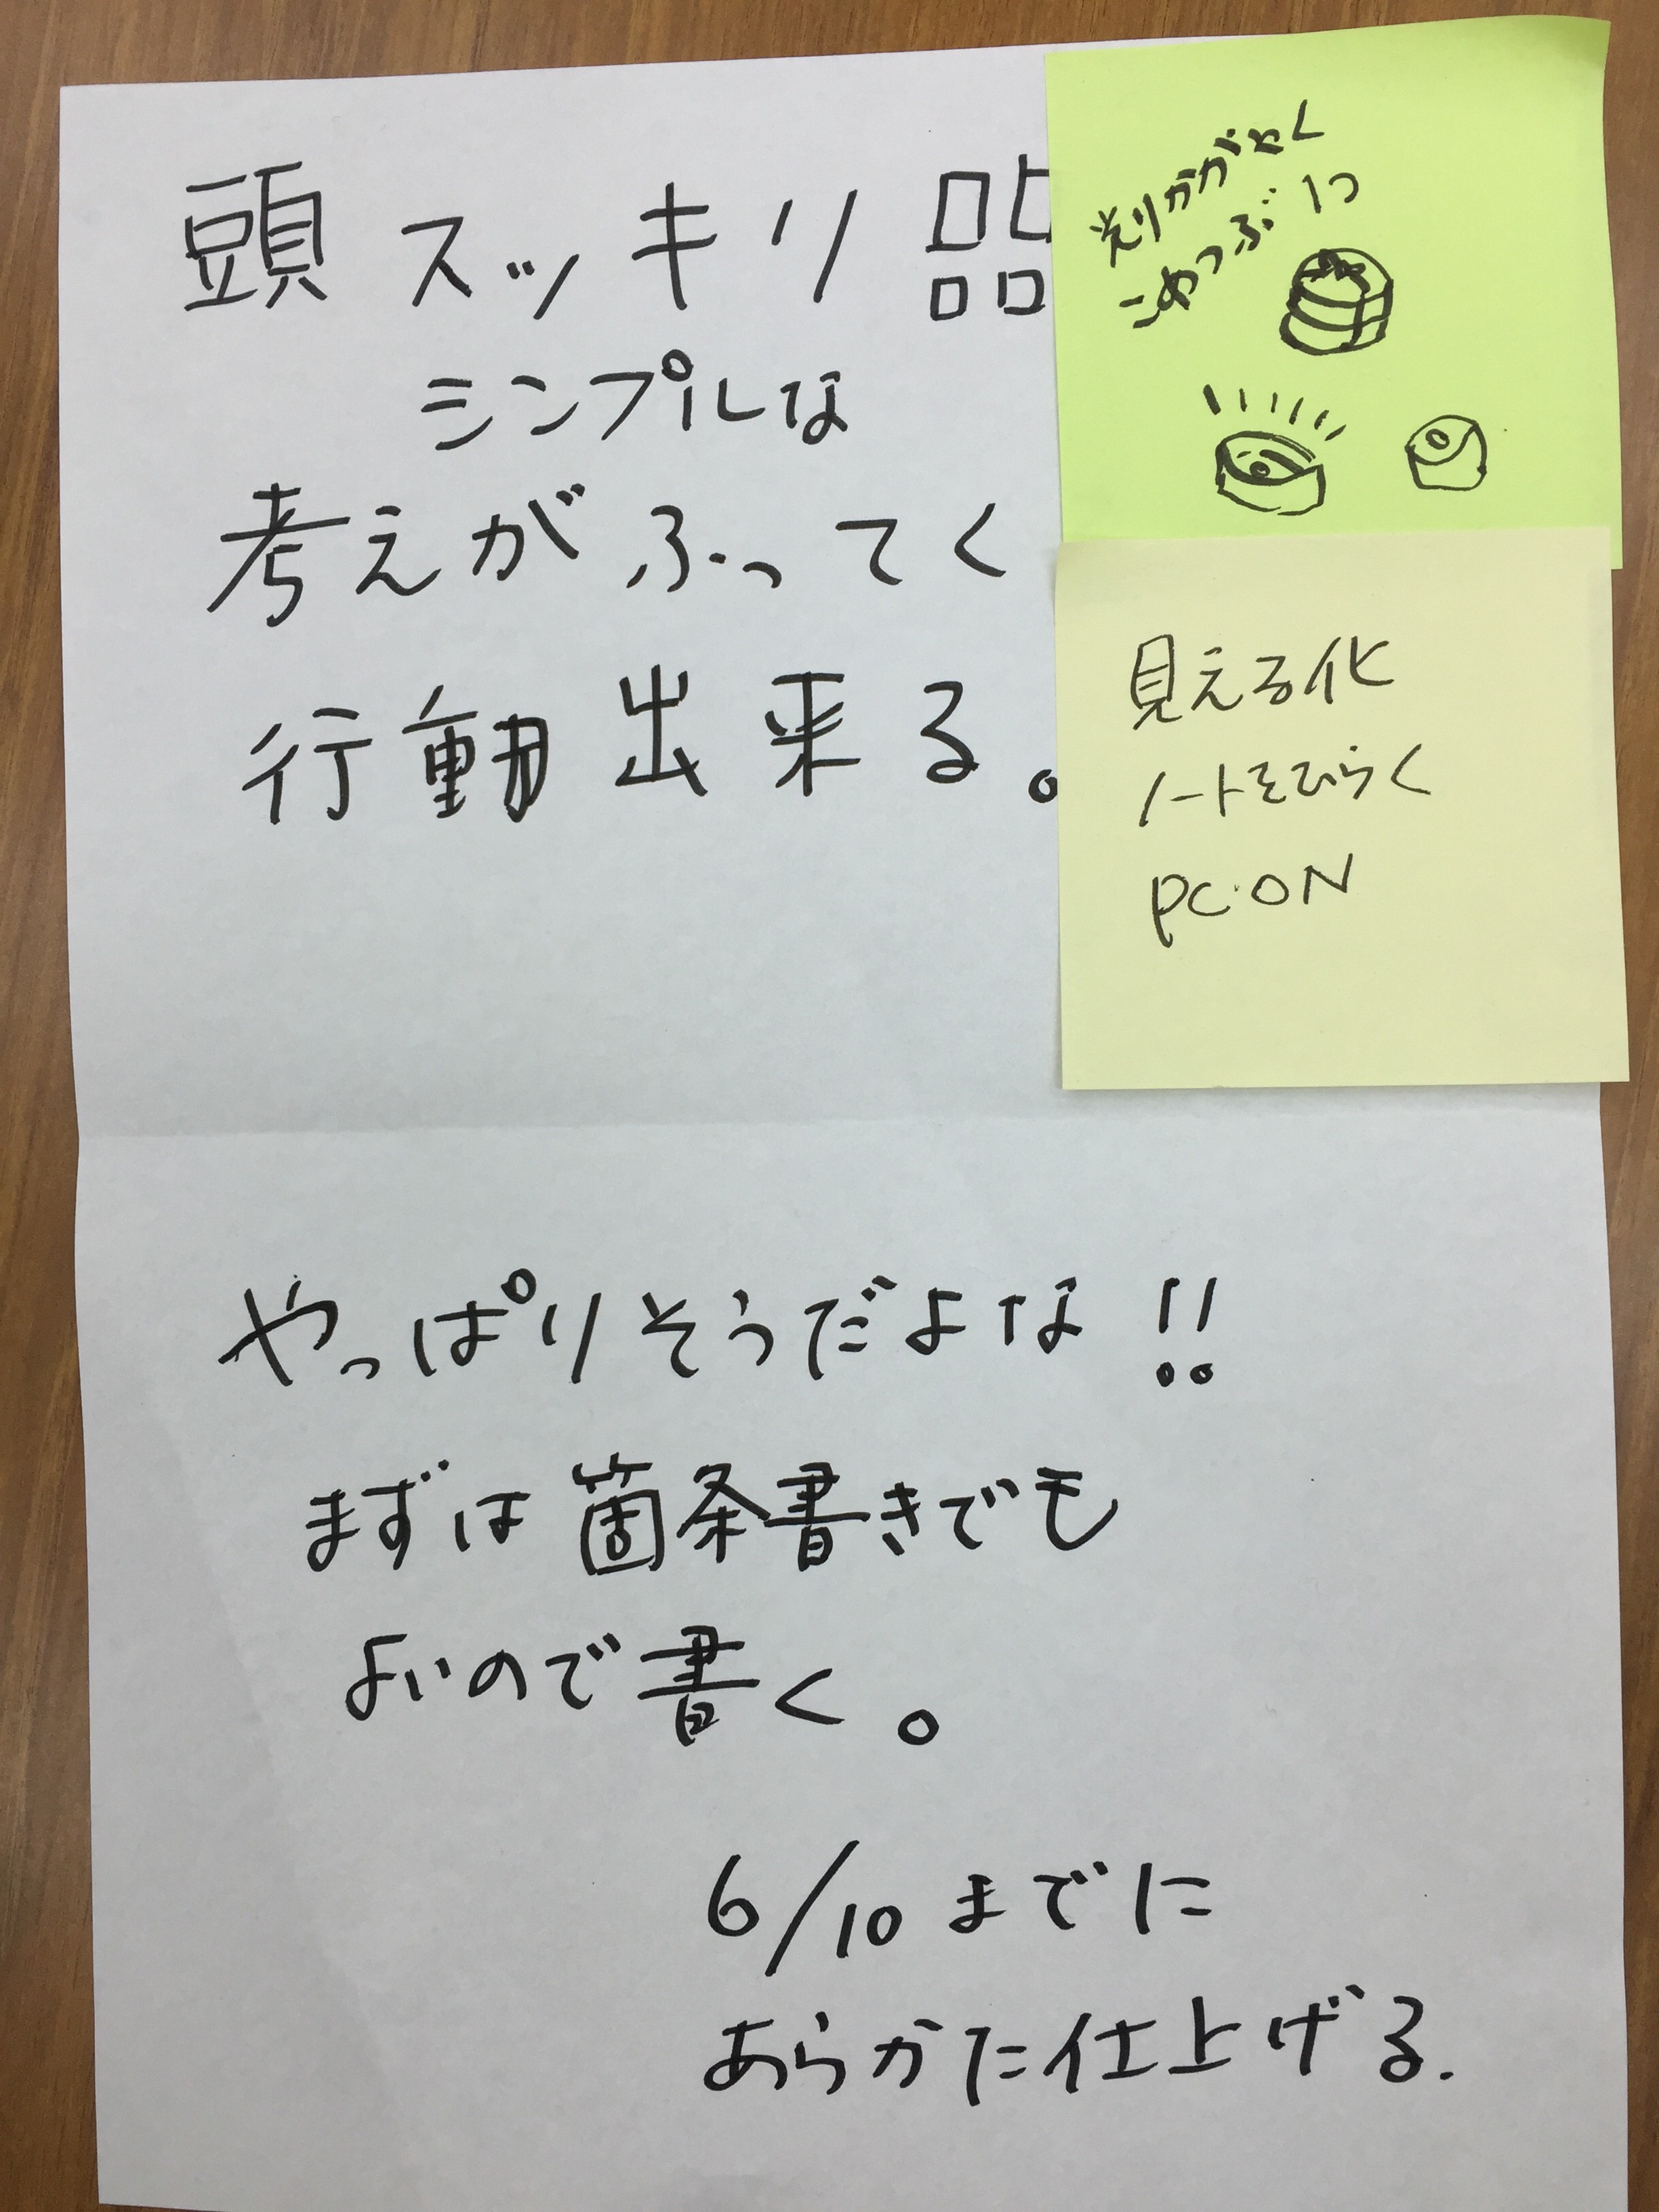 頭スッキリ品
シンプルな
考えがふってく
行動出来る。
光りかがやく
こめつぶ1つ
見える化
ノートをひらく
PC・ON
やっぱりそうだよな!!
まずは箇条書きでも
よいので書く。
6/10までに
あらかた仕上げる.